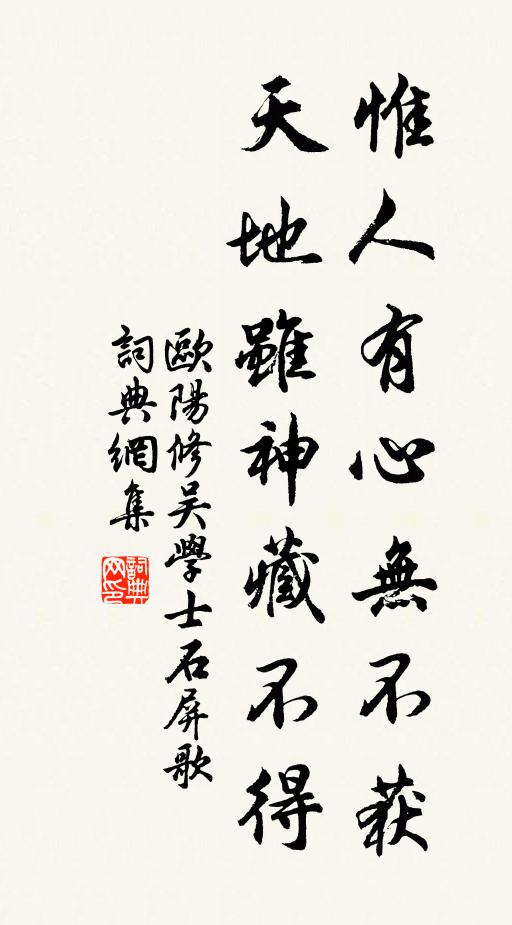 惟人有心無不获
天地雖神藏不得
歐陽修吴學士石屏歌
詞典網集
詞典网印